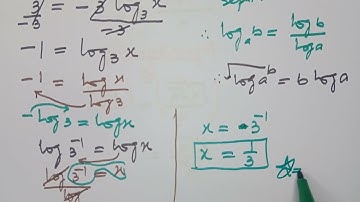 3/-3 = -3 log₃ x/-3
-1 = log₃ x
-1 = log x/log 3
-log 3 = log x
log 3⁻¹ = log x
log 3⁻¹ = x
∴ logₐ b = log b/log a
∴ log aᵇ = b log a
x = 3⁻¹
x = 1/3